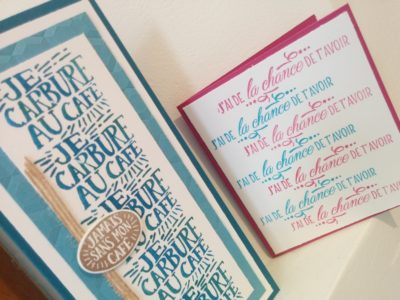 JE
CARBURE
AU CAFÉ
JE
CARBURE
AU CAFÉ
JE
CARBURE
AU CAFÉ
JE
CARBURE
AU CAFÉ
JAMAIS
SANS MON
CAFÉ
J'AI DE la chance DE T'AVOIR
J'AI DE la chance DE T'AVOIR
J'AI DE la chance DE T'AVOIR
J'AI DE la chance DE T'AVOIR
J'AI DE la chance DE T'AVOIR
J'AI DE la chance DE T'AVOIR
J'AI DE la chance DE T'AVOIR